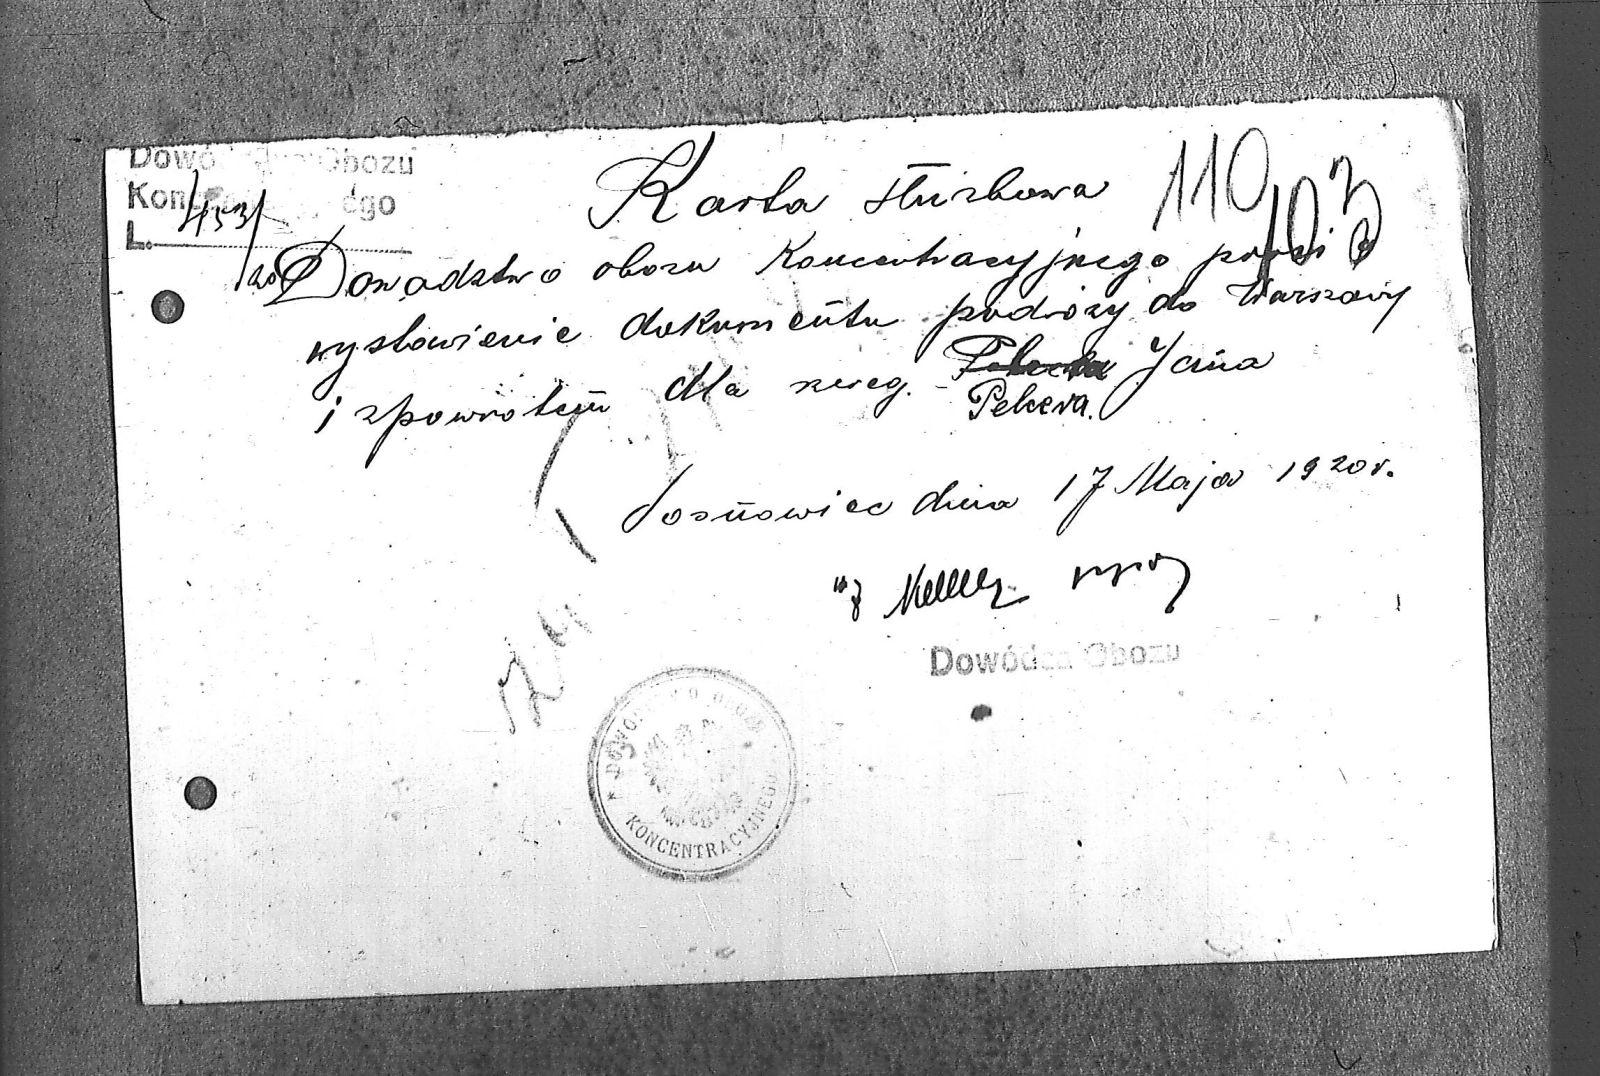 Obozu
L. 453/20
Karta służbowa
110
103
Dowództwo obozu Koncentracyjnego prosi o
wystawienie dokumentu podróży do Warszawy
i zpowrotem dla szereg. Jana
Pekera.
Sosnowiec dnia 17 Maja 1920 r.
Dowódca Obozu
DOWÓDZTWO OBOZU
KONCENTRACYJNEGO